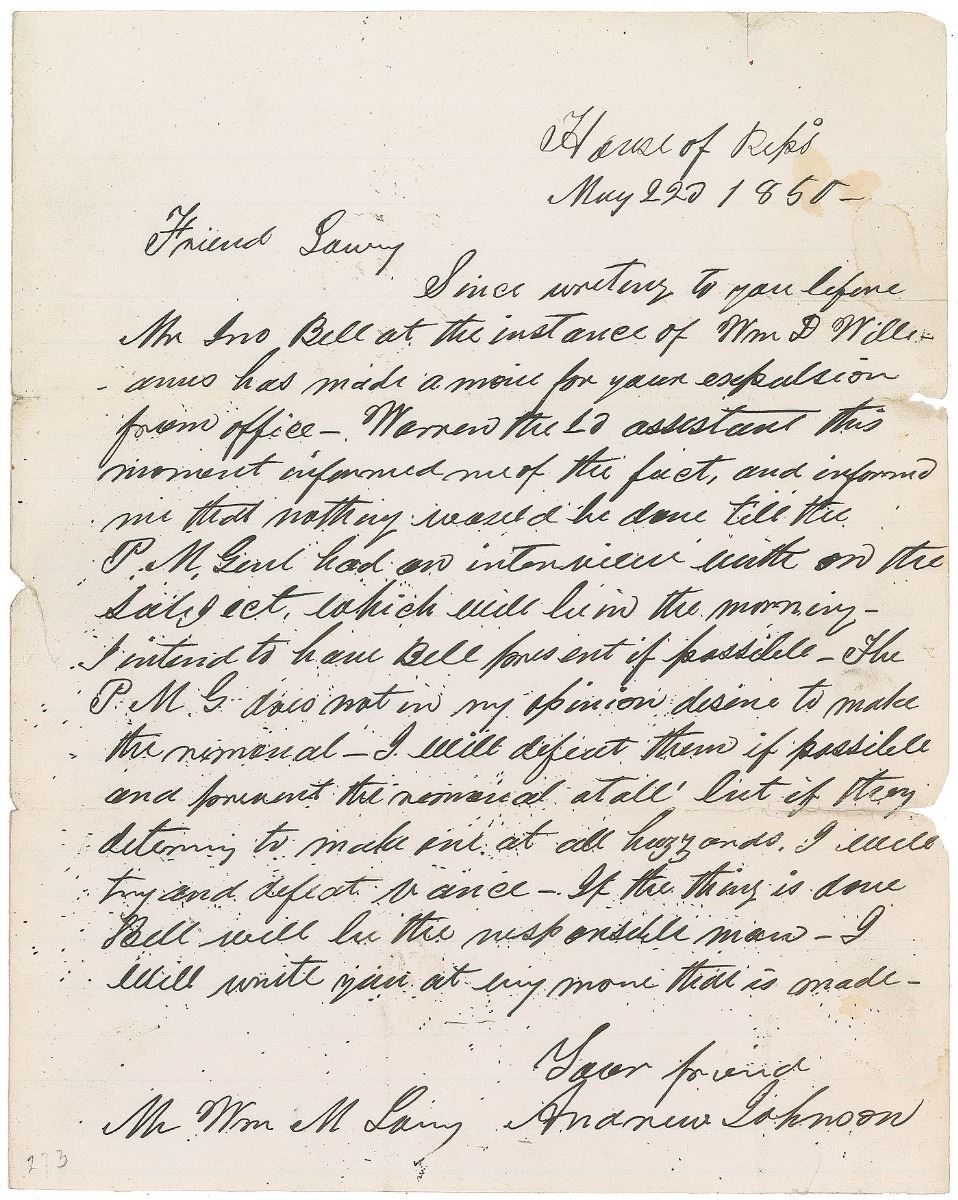 House of Reps
May 22d 1850–
Friend Lowry
Since writing to you before
Mr Jno Bell at the instance of Wm D Willi-
ams has made a move for your expulsion
from office – Warren the 2d assistant this
moment informed me of the fact, and informd
me that nothing would be done till the
P. M. Genl had an interview with on the
subject, which will be in the morning –
I intend to have Bell present if possible – The
P. M. G. does not in my opinion desire to make
the removal – I will defeat them if possible
and prevent the removal at all' but if they
determin to make one at all hazzards, I will
try and defeat Vance – If the thing is done
Bell will be the responsible man – I
will write you at evry move that is made –
Your friend
Andrew Johnson
Mr Wm M Lowry
273